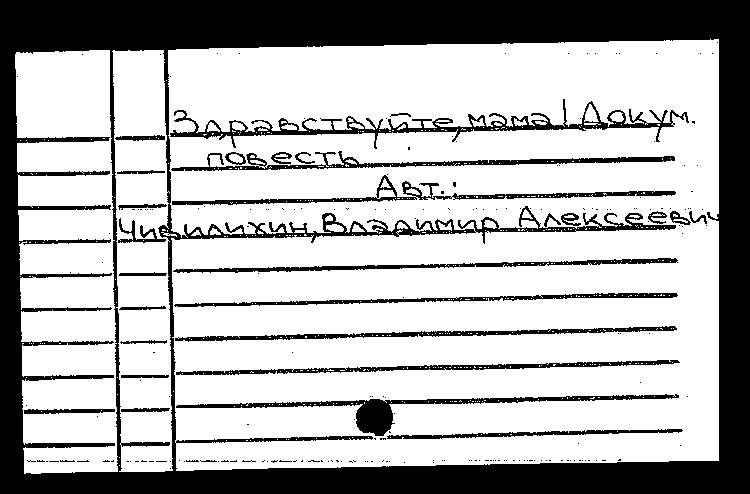 Здравствуйте, мама! Докум.
повесть
Авт.:
Чивилихин, Владимир Алексеевич